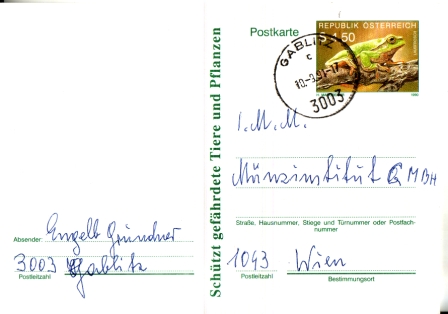 Postkarte
REPUBLIK ÖSTERREICH
S 1.50
GABLITZ
c
3003
Schützt gefährdete Tiere und Pflanzen
I.M.M.
Münzinstitut GMBH
Straße, Hausnummer, Stiege und Türnummer oder Postfach-
nummer
1043 Wien
Postleitzahl Bestimmungsort
Absender: Engelb Gründner
3003 Gablitz
Postleitzahl